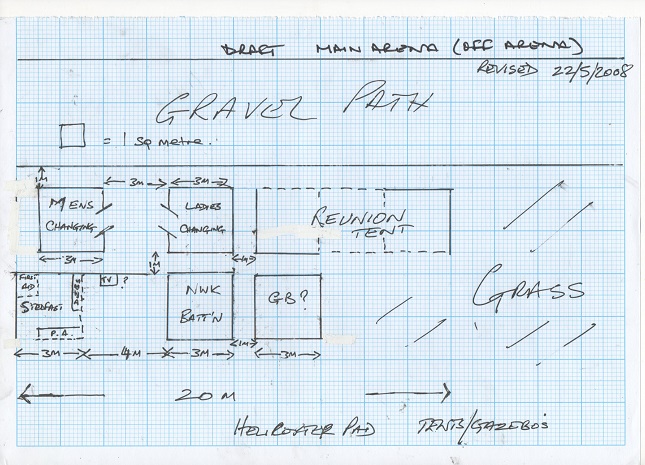 DRAFT MAIN ARENA (OFF ARENA)
REVISED 22/5/2008
GRAVEL PATH
= 1 sq metre.
1M
3M
3M
MENS
CHANGING
LADIES
CHANGING
REUNION
TENT
3M
1M
1M
FIRST
AID
STEDFAST
TV ?
P.A.
NWK
BATT'N
GB?
GRASS
3M
4M
3M
1M
3M
20 M
HELICOPTER PAD TENTS/GAZEBO'S